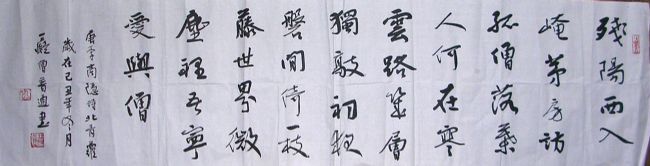 殘陽西入
崦茅房訪
孤僧落葉
人何在寒
雲路幾層
獨敲初夜
磬閒倚一枝
藤世界微
塵裡吾寧
愛與僧
唐李商隱詩北青蘿
歲在己丑年冬月
僧普迪書